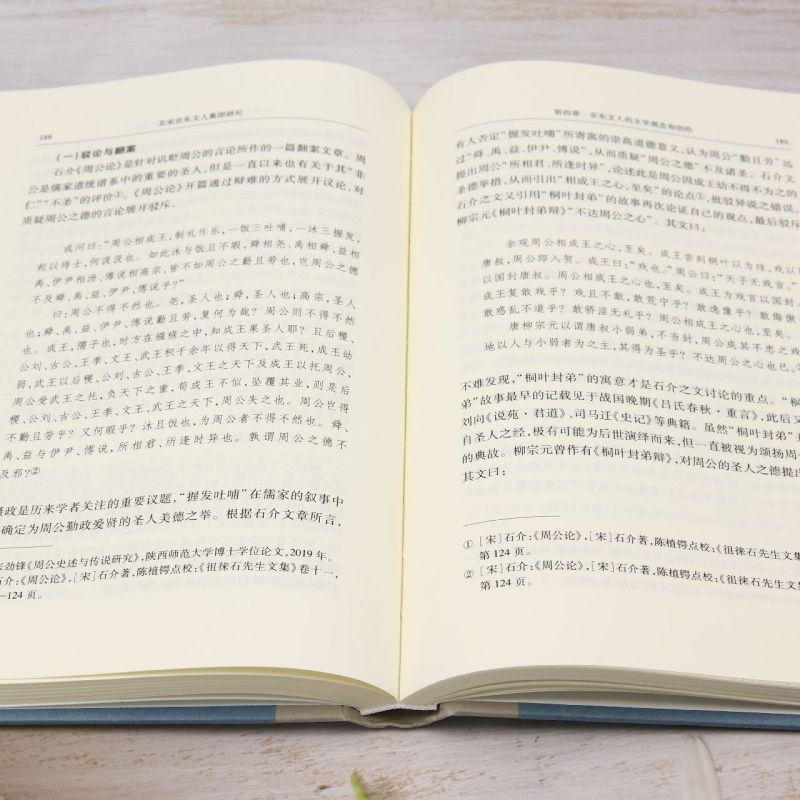 188
北宋京东文人集团研究
(一)驳论与翻案
石介《周公论》是针对讥贬周公的言论所作的一篇翻案文章。周
公是儒家道统谱系中的重要的圣人,但是一直以来也有关于其“非
仁”“不圣”的评价①。《周公论》开篇通过辩难的方式展开议论,对
质疑周公之德的言论展开驳斥。
或问曰:“周公相成王,制礼作乐,一饭三吐哺,一沐三握发,
起以待士,何汲汲也。如此沐与饭且不暇,舜相尧、禹相舜、益相
禹、伊尹相汤、傅说相高宗,皆不如周公之勤且劳也,岂周公之德
不及舜、禹、益、伊尹、傅说乎?”
曰:周公不得不然也。尧,圣人也;舜,圣人也;高宗,圣人
也;舜、禹、益、伊尹、傅说勤且劳,复何为哉?周公则不得不然
也。成王,孺子也,时方在襁褓之中,知成王果圣人耶?且后稷、
公刘、古公、王季、文王、武王积千余年以得天下,武王死,成王幼
弱,武王以后稷、公刘、古公、王季、文王之天下及成王以托周公,
周公受武王之托,负天下之重,苟成王不似,坠覆其业,则是后
稷、公刘、古公、王季、文王、武王之天下,周公失之也。周公岂得
不勤且劳乎?又何暇乎?沐且饭也,为周公者不得不然也。舜、
禹、益与伊尹、傅说,所相君、所逢时异也。敦谓周公之德不
及邪?②
摄政是历来学者关注的重要议题,“握发吐哺”在儒家的叙事中
确定为周公勤政爱贤的圣人美德之举。根据石介文章所言,
劲锋《周公史述与传说研究》,陕西师范大学博士学位论文,2019年。
石介:《周公论》,[宋]石介著,陈植锷点校:《徂徕石先生文集》卷十一,
—124页。
第四章 京东文人的文学观念和创作
189
有人否定“握发吐哺”所寄寓的崇高道德意义,认为周公“勤且劳”远
过“舜、禹、益、伊尹、傅说”,从而质疑“周公之德”不及诸圣。石介文
提出周公“所相君、所逢时异”,论述此是周公因成王幼不得不为之的
圣德举措,从而引出“相成王之心,至矣”的论点①,批驳异说之错误。
石介之文又引用“桐叶封弟”的故事再次论证自己的观点,最后驳斥
柳宗元《桐叶封弟辩》“不达周公之心”。其文曰:
余观周公相成王之心,至矣。成王尝刻桐叶以为珪,戏以
唐叔,周公即入贺。成王曰:“戏也。”周公曰:“天子无戏言。”
以国封唐叔。周公相成王之心也,至矣。成王为戏言以国封
成王复敢戏乎?戏且不敢,敢荒宁乎?敢逸豫乎?敢侮傲
敢惑乱不道乎?敢骄淫无礼乎?周公相成王之心也,至矣。
唐柳宗元以谓唐叔小弱弟,不当封,周公成其不忠之戏
地以人与小弱者为之主,其得为圣乎?不达周公之心也。
不难发现,“桐叶封弟”的寓意才是石介之文讨论的重点。“桐
弟”故事最早的记载见于战国晚期《吕氏春秋·重言》,此后又
刘向《说苑·君道》、司马迁《史记》等典籍。虽然“桐叶封弟”
自圣人之经,极有可能为后世演绎而来,但一直被视为颂扬周
的典故。柳宗元曾作有《桐叶封弟辩》,对周公的圣人之德提出
其文曰:
① [宋]石介:《周公论》,[宋]石介著,陈植锷点校:《徂徕石先生文集》
第124页。
② [宋]石介:《周公论》,[宋]石介著,陈植锷点校:《徂徕石先生文集》
第124页。